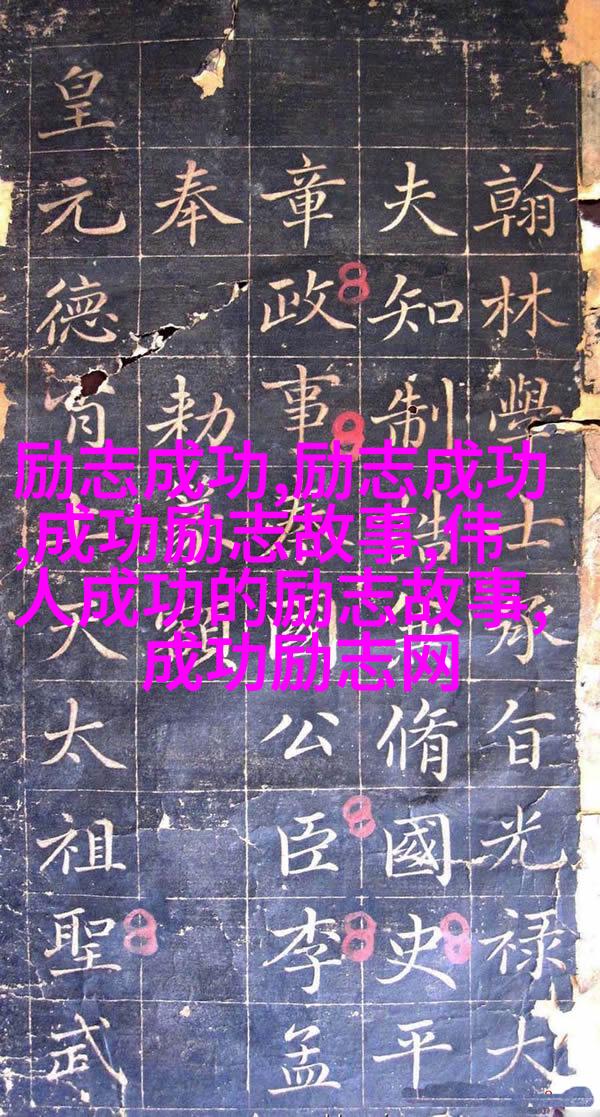 励志成功,励志成功
,成功励志故事,伟
人成功的励志故事,
成功励志网
翰林學士承旨光禄大
夫知制誥脩國史平
章政事秦國公臣李孟
奉勑篆
皇元德天太祖聖武